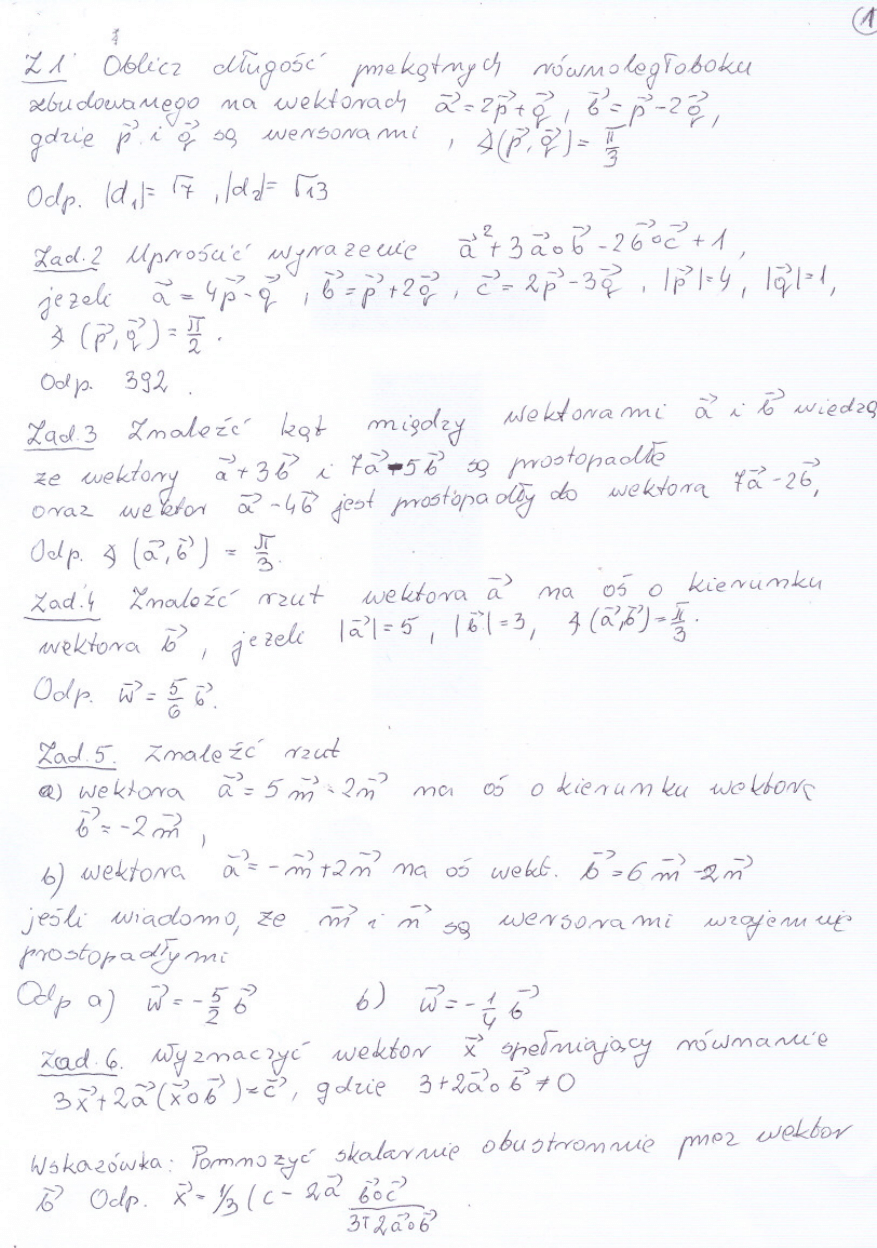 1
Z 1 Oblicz długość przekątnych równoległoboku
zbudowanego na wektorach a⃗=2p⃗+q⃗, b⃗=p⃗-2q⃗,
gdzie p⃗ i q⃗ są wersorami, ∢(p⃗,q⃗)=π/3
Odp. |d₁|=√7, |d₂|=√13
Zad.2 Uprościć wyrażenie a⃗²+3a⃗∘b⃗-2b⃗∘c⃗+1,
jeżeli a⃗=4p⃗-q⃗, b⃗=p⃗+2q⃗, c⃗=2p⃗-3q⃗, |p⃗|=4, |q⃗|=1,
∢(p⃗,q⃗)=π/2.
Odp. 392.
Zad.3 Znaleźć kąt między wektorami a⃗ i b⃗ wiedzą
że wektory a⃗+3b⃗ i 7a⃗-5b⃗ są prostopadłe
oraz wektor a⃗-4b⃗ jest prostopadły do wektora 7a⃗-2b⃗,
Odp. ∢(a⃗,b⃗)=π/3.
Zad.4 Znaleźć rzut wektora a⃗ na oś o kierunku
wektora b⃗, jeżeli |a⃗|=5, |b⃗|=3, ∢(a⃗,b⃗)=π/3.
Odp. w⃗=5/6 b⃗.
Zad.5. Znaleźć rzut
a) wektora a⃗=5m⃗-2n⃗ na oś o kierunku wektora
b⃗=-2m⃗,
b) wektora a⃗=-m⃗+2n⃗ na oś wekt. b⃗=6m⃗-2n⃗
jeśli wiadomo, że m⃗ i n⃗ są wersorami wzajemnie
prostopadłymi
Odp a) w⃗=-5/2 b⃗ b) w⃗=-1/4 b⃗
Zad.6. Wyznaczyć wektor x⃗ spełniający równanie
3x⃗+2a⃗(x⃗∘b⃗)=c⃗, gdzie 3+2a⃗∘b⃗≠0
Wskazówka: Pomnożyć skalarnie obustronnie przez wektor
b⃗ Odp. x⃗=1/3(c-2a⃗ b⃗∘c⃗/3+2a⃗∘b⃗